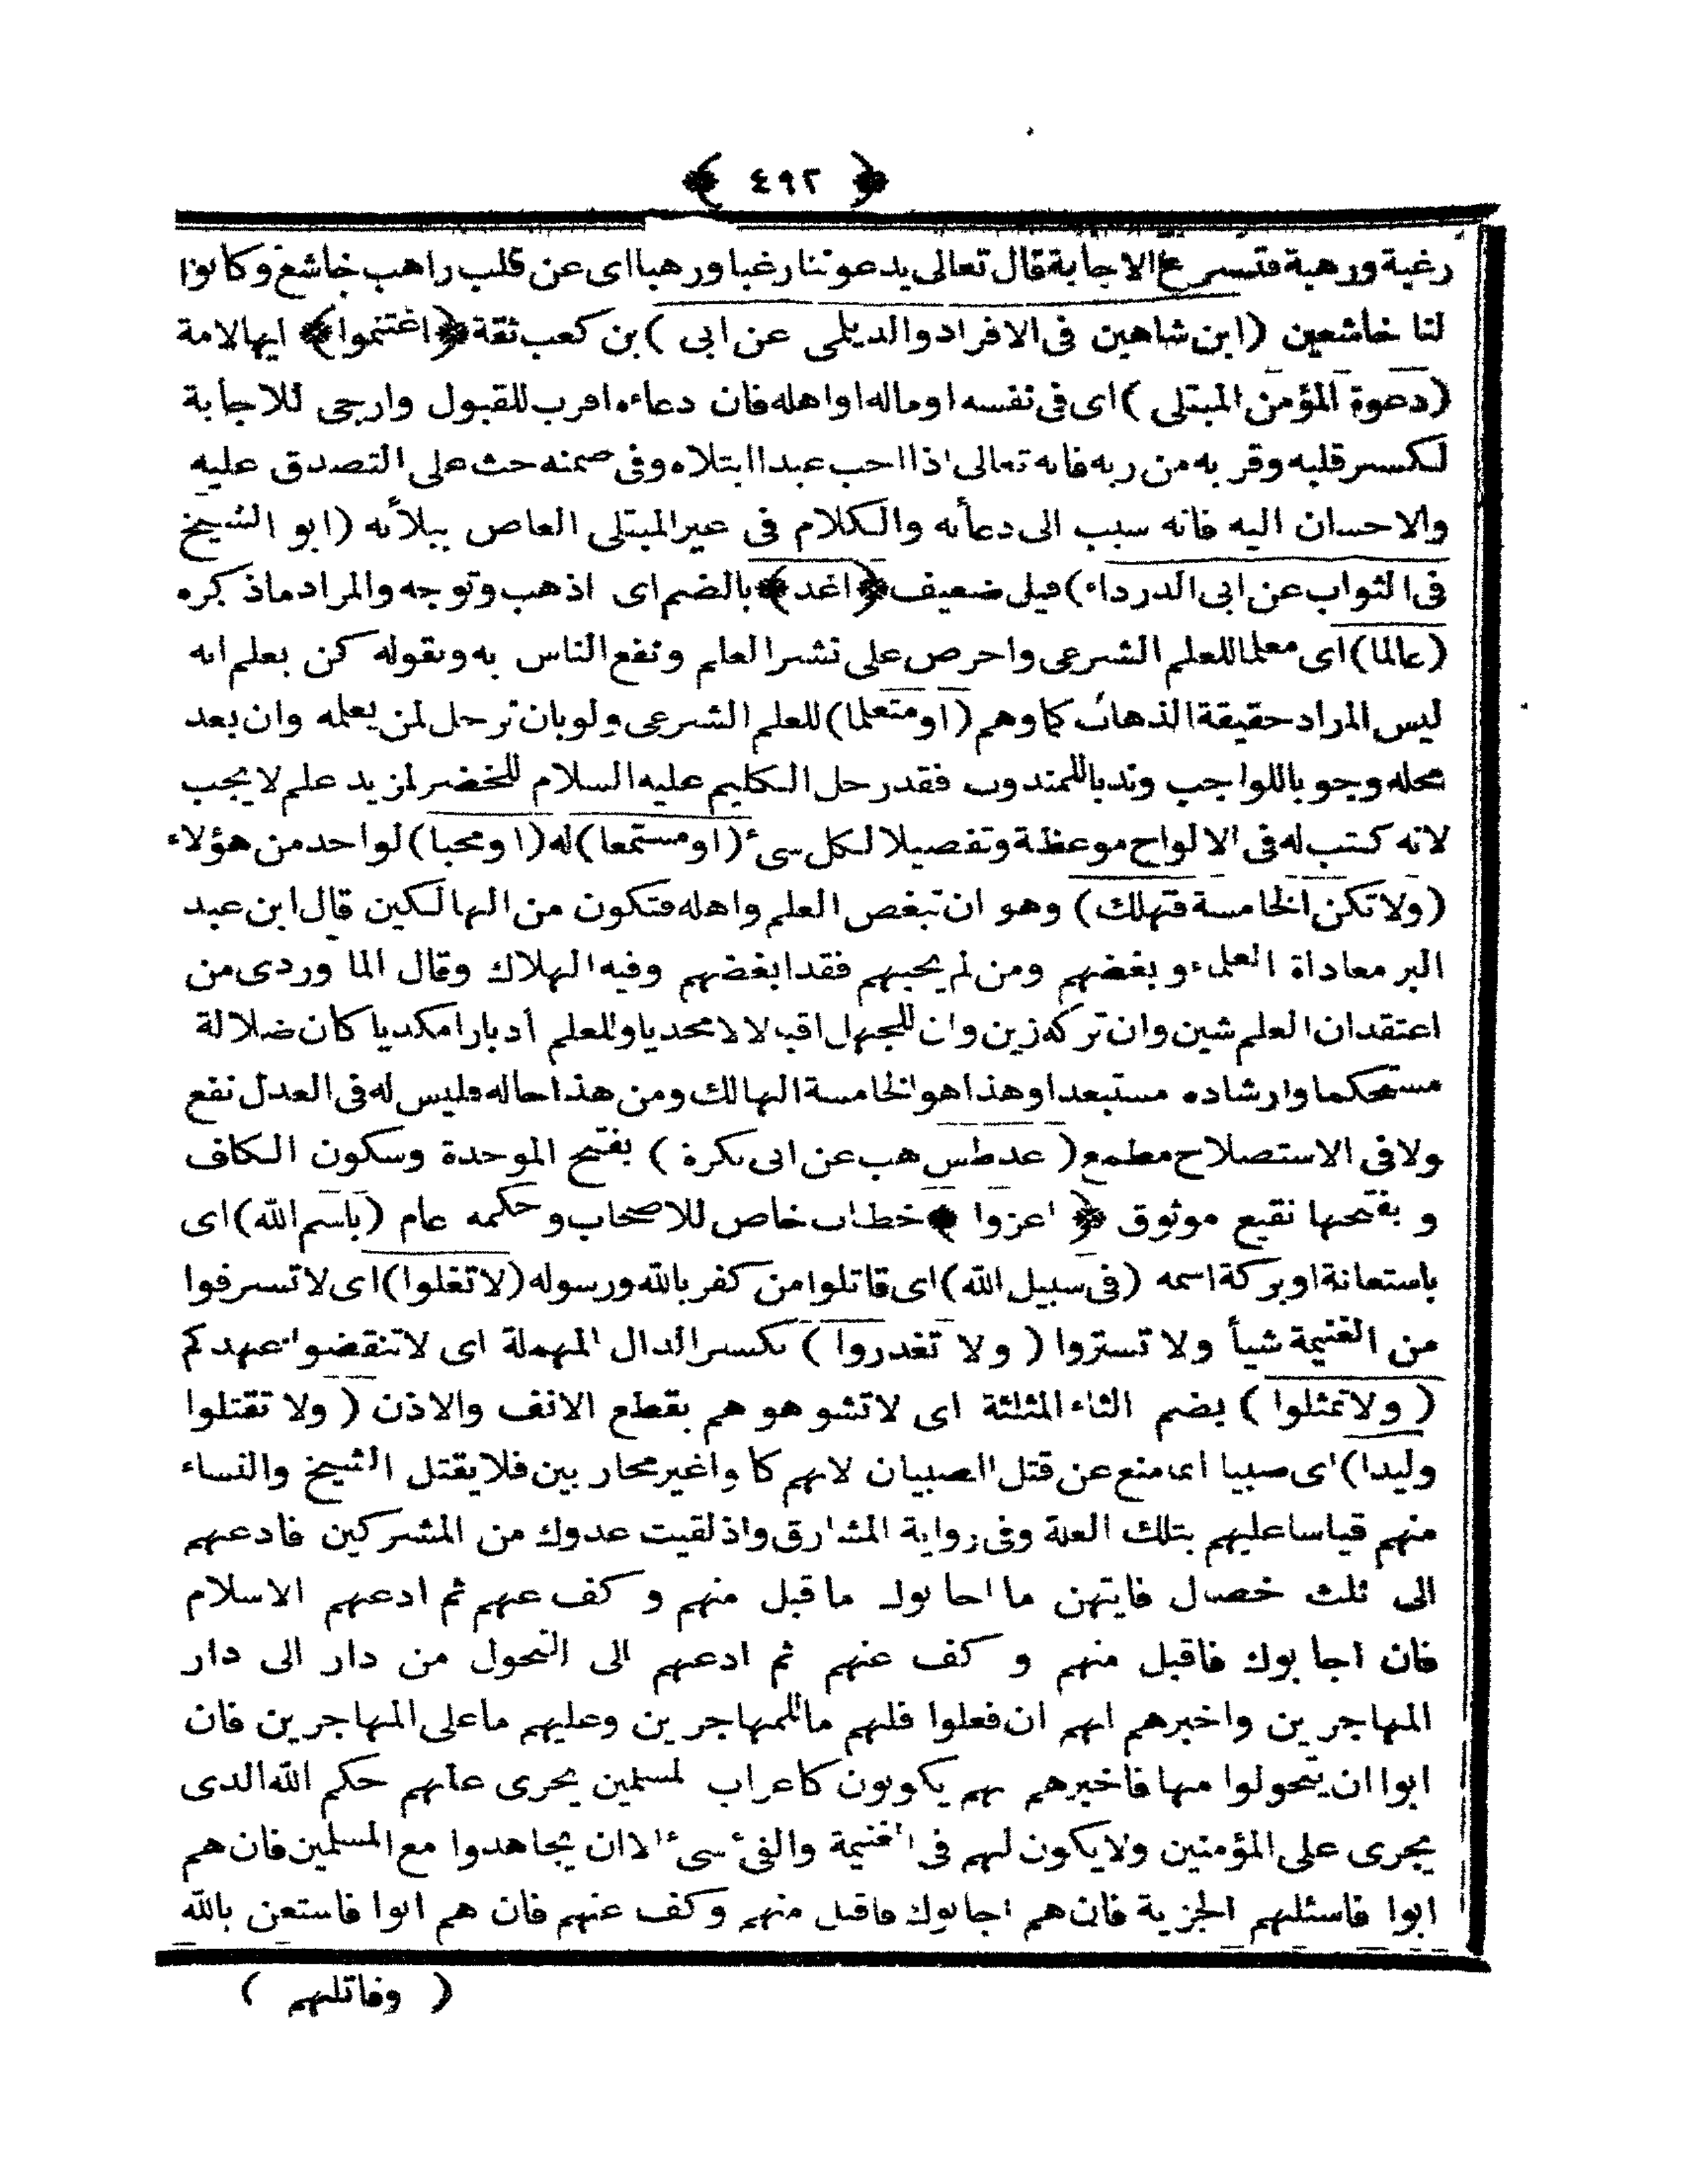 ﴿ ٤٩٢ ﴾
رغبة ورهبة فتسرع الاجابة قال تعالى يدعوننا رغبا ورهبا اى عن قلب راهب خاشع وكانوا
لنا خاشعين (ابن شاهين فى الافراد والديلمى عن ابى) بن كعب ثقة ﴿اغتنموا﴾ ايها الامة
(دعوة المؤمن المبتلى) اى فى نفسه او ماله او اهله فان دعاءه اقرب للقبول وارجى للاجابة
لكسر قلبه وقربه من ربه فانه تعالى اذا احب عبدا ابتلاه وفى ضمنه حث على التصدق عليه
والاحسان اليه فانه سبب الى دعائه والكلام فى غير المبتلى العاص ببلائه (ابو الشيخ
فى الثواب عن ابى الدرداء) قيل ضعيف ﴿اغد﴾ بالضم اى اذهب وتوجه والمراد ما ذكره
(عالما) اى معلما للعلم الشرعى واحرص على نشر العلم ونفع الناس به وبقوله كن يعلم انه
ليس المراد حقيقة الذهاب كما وهم (او متعلما) للعلم الشرعى ولو بان ترحل لمن يعلمه وان بعد
محله وجوبا للواجب وندبا للمندوب فقد رحل الكليم عليه السلام للخضر لمزيد علم لا يجب
لانه كتب له فى الالواح موعظة وتفصيلا لكل شىء (او مستمعا) له (او محبا) لواحد من هؤلاء
(ولا تكن الخامسة فتهلك) وهو ان تبغض العلم واهله فتكون من الهالكين قال ابن عبد
البر معاداة العلماء وبغضهم ومن لم يحبهم فقد ابغضهم وفيه الهلاك وقال الماوردى من
اعتقد ان العلم شين وان تركه زين وان للجهل اقبالا محديا وللعلم أدبارا مكديا كان ضلالة
مستحكما وارشاده مستبعدا وهذا هو الخامسة الهالك ومن هذا حاله فليس له فى العدل نفع
ولا فى الاستصلاح مطمع (عد طس هب عن ابى بكرة) بفتح الموحدة وسكون الكاف
وبفتحها نقيع موثوق ﴿ اغزوا ﴾ خطاب خاص للاصحاب وحكمه عام (باسم الله) اى
باستعانة او بركة اسمه (فى سبيل الله) اى قاتلوا من كفر بالله ورسوله (لا تغلوا) اى لا تسرفوا
من الغنيمة شيأ ولا تستروا (ولا تغدروا) بكسر الدال المهملة اى لا تنقضوا عهدكم
(ولا تمثلوا) بضم الثاء المثلثة اى لا تشوهوهم بقطع الانف والاذن (ولا تقتلوا
وليدا) اى صبيا انما منع عن قتل الصبيان لانهم كانوا غير محاربين فلا يقتل الشيخ والنساء
منهم قياسا عليهم بتلك العلة وفى رواية المشارق واذ لقيت عدوك من المشركين فادعهم
الى ثلث خصال فايتهن ما اجابوك فاقبل منهم وكف عنهم ثم ادعهم الاسلام
فان اجابوك فاقبل منهم وكف عنهم ثم ادعهم الى التحول من دار الى دار
المهاجرين واخبرهم انهم ان فعلوا فلهم ما للمهاجرين وعليهم ما على المهاجرين فان
ابوا ان يتحولوا منها فاخبرهم انهم يكونون كاعراب المسلمين يجرى عليهم حكم الله الذى
يجرى على المؤمنين ولا يكون لهم فى الغنيمة والفىء شىء الا ان يجاهدوا مع المسلمين فان هم
ابوا فاسئلهم الجزية فان هم اجابوك فاقبل منهم وكف عنهم فان هم ابوا فاستعن بالله
( وقاتلهم )